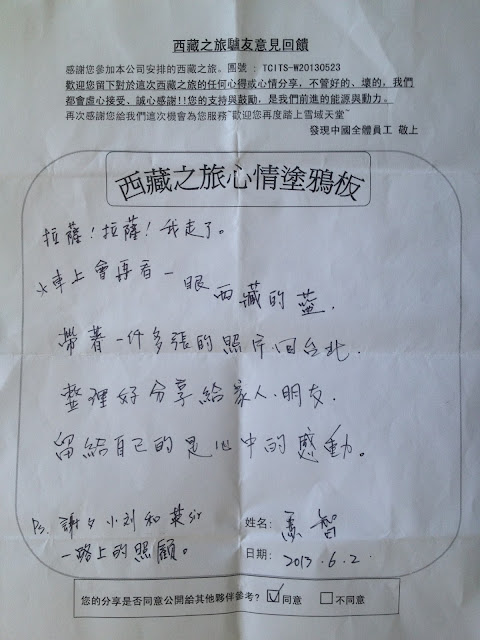 西藏之旅驢友意見回饋
感謝您參加本公司安排的西藏之旅。團號：TCITS-W20130523
歡迎您留下對於這次西藏之旅的任何心得或心情分享，不管好的、壞的，我們
都會虛心接受、誠心感謝!!您的支持與鼓勵，是我們前進的能源與動力。
再次感謝您給我們這次機會為您服務"歡迎您再度踏上雪域天堂"
發現中國全體員工 敬上
西藏之旅心情塗鴉板
拉薩！拉薩！我走了。
火車上會再看一眼西藏的藍．
帶著一仟多張的照片回台北．
整理好分享給家人、朋友．
留給自己的是心中的感動。
Ps. 謝々小刘和蔡sir
一路上的照顧。
姓名： 智
日期： 2013.6.2.
您的分享是否同意公開給其他夥伴參考? ☑同意 □不同意